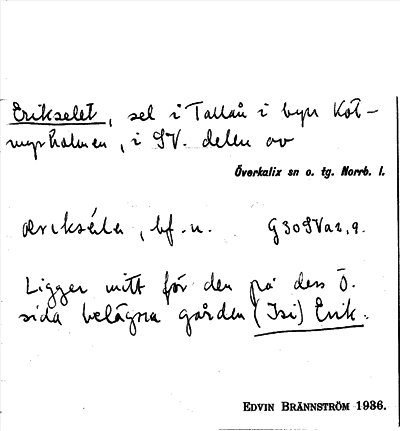 Erikselet, sel i Tallån i byn Köt-
myrholmen, i SV. delen av
Överkalix sn o. tg. Norrb. l.
æriksélə, bf. n. G30SVa2,9.
Ligger mitt för den på dess Ö.
sida belägna gården (Isi) Erik.
EDVIN BRÄNNSTRÖM 1936.